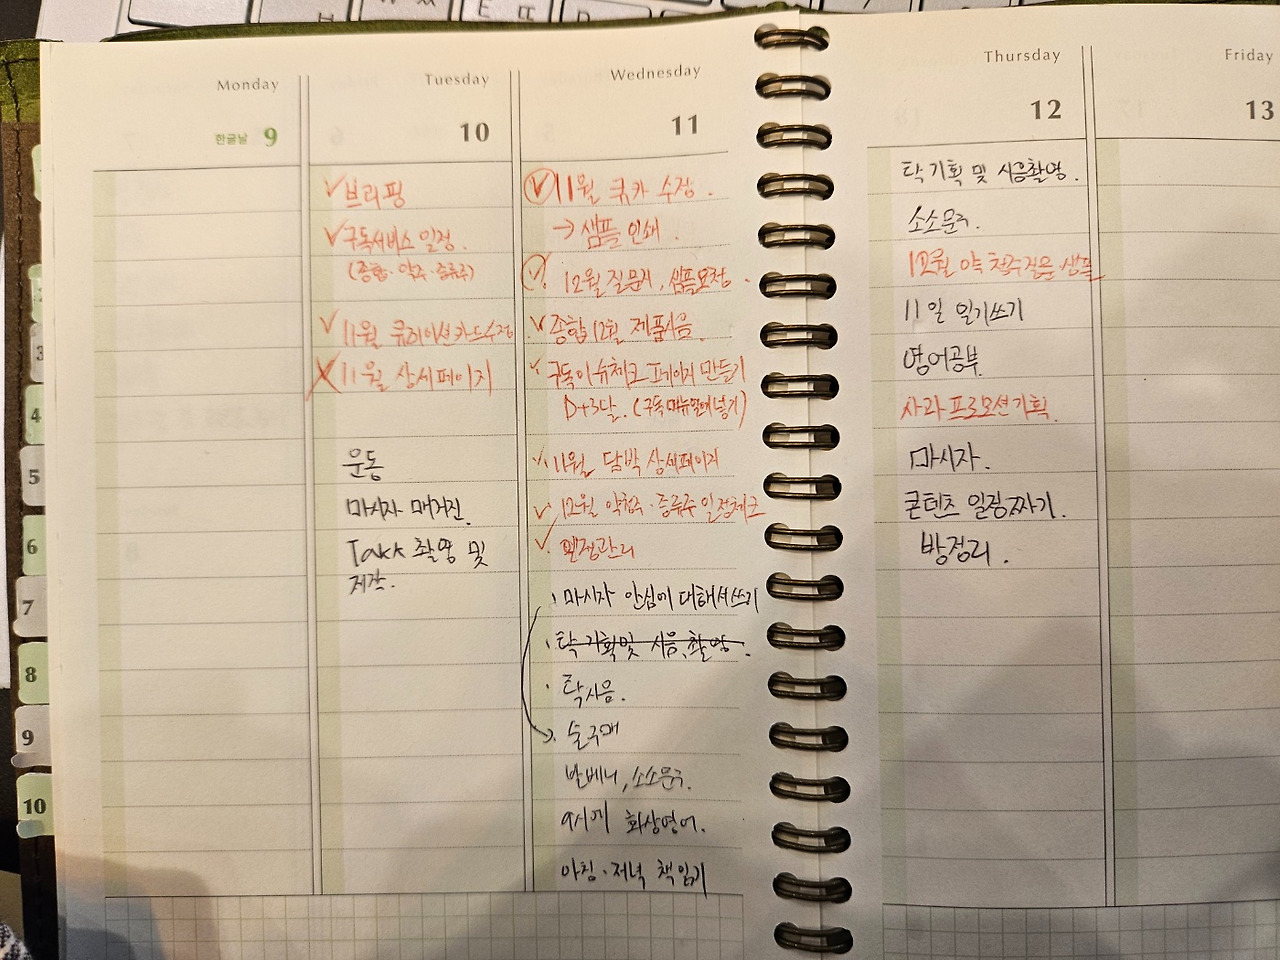 Monday
한글날 9
Tuesday
10
✓브리핑
✓구독서비스 일정.
(종합·약주·증류주)
✓11월 큐레이션카드수정
✗11월 상세페이지
운동
마시자 매거진.
Takk 촬영 및
제작.
Wednesday
11
✓11월 큐카 수정.
→ 샘플 인쇄.
✓. 12월 질문지, 샘플요청.
✓종합 12월 제품시음.
✓구독이슈체크 페이지 만들기
D+3달. (구독매뉴얼에 넣기)
✓11월 담박 상세페이지
✓12월 약청주·증류주 일정체크
✓ 일정관리
· 마시자 안심에 대해서쓰기
· 탁 기획및 시음, 촬영.
· 탁시음.
술구매
발베니, 소소문구.
9시에 화상영어.
아침·저녁 책읽기
Thursday
12
탁 기획 및 시음촬영.
소소문구.
12월 약청주적음 샘플
11일 일기쓰기
영어공부.
사과프로모션기획.
마시자.
콘텐츠 일정짜기.
방정리.
Friday
13
3
4
5
6
7
8
9
10